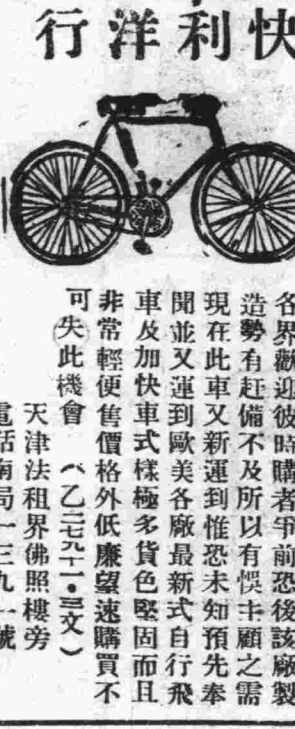 快利洋行
各界歡迎彼時購者爭前恐後該廠製
造勢有赶備不及所以有悞主顧之需
現在此車又新運到惟恐未知預先奉
聞並又運到歐美各廠最新式自行飛
車及加快車式樣極多貨色堅固而且
非常輕便售價格外低廉望速購買不
可失此機會 (乙二七九十一•三文)
天津法租界佛照樓旁
電話南局一三九一號